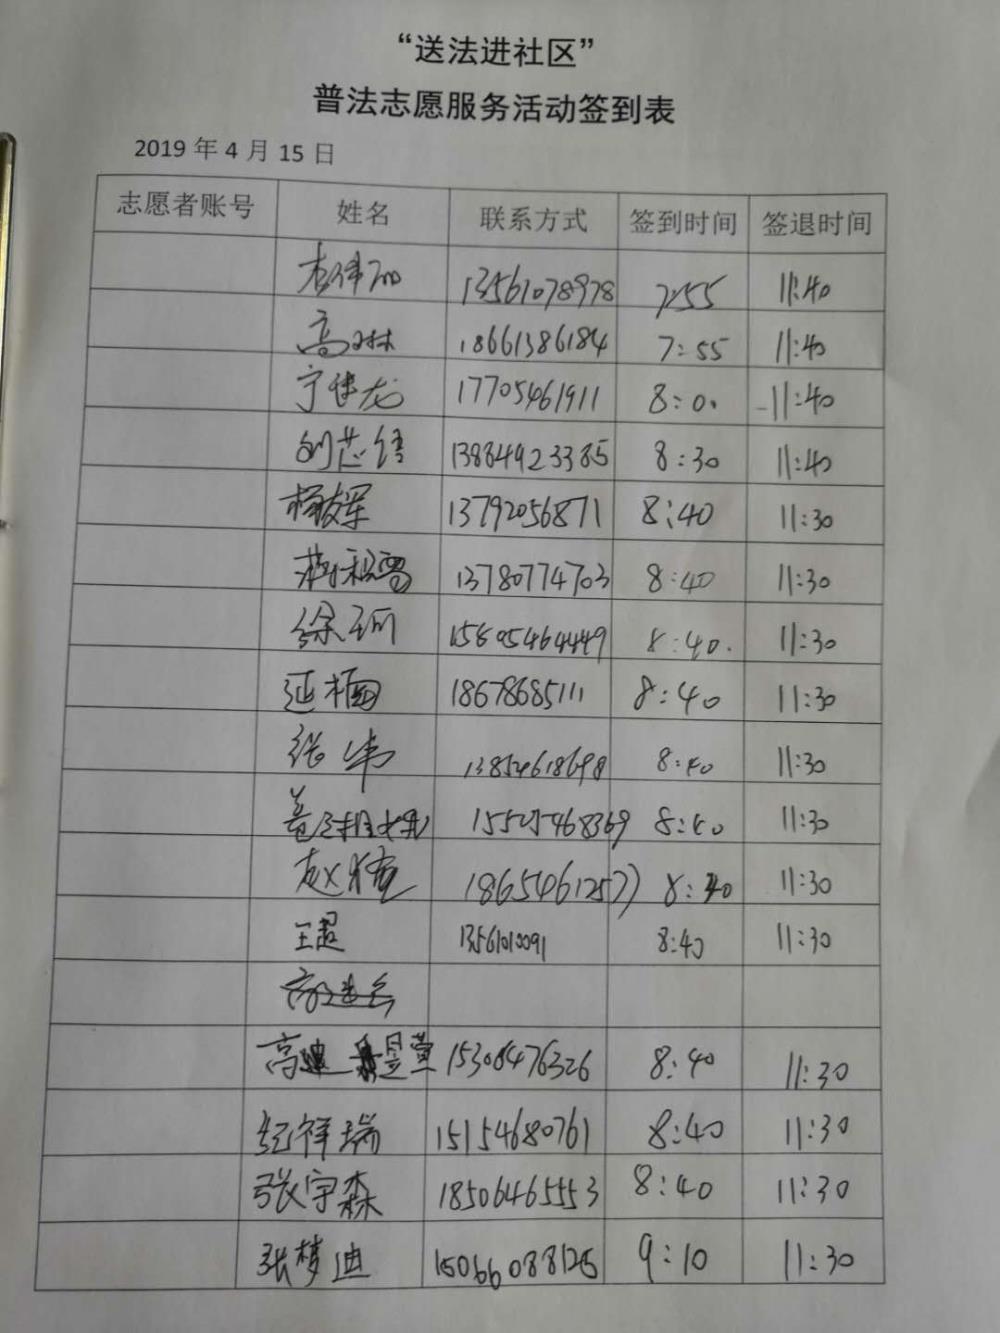 “送法进社区”
普法志愿服务活动签到表
2019 年 4 月 15 日
志愿者账号 姓名 联系方式 签到时间 签退时间
13561078978 7:55 11:40
高琳 18661386184 7:55 11:40
宁继龙 17705461911 8:00 11:40
刘芯语 13884923385 8:30 11:40
杨俊军 13792056871 8:40 11:30
13780774703 8:40 11:30
徐珂 15605464449 8:40 11:30
延楠 18678685111 8:40 11:30
张伟 13854618698 8:40 11:30
15505468369 8:40 11:30
赵 18654612577 8:40 11:30
王超 13561010091 8:40 11:30
高 昱萱 15308476326 8:40 11:30
纪祥瑞 15154680761 8:40 11:30
张宇森 18506465553 8:40 11:30
张梦迪 15066088125 9:10 11:30